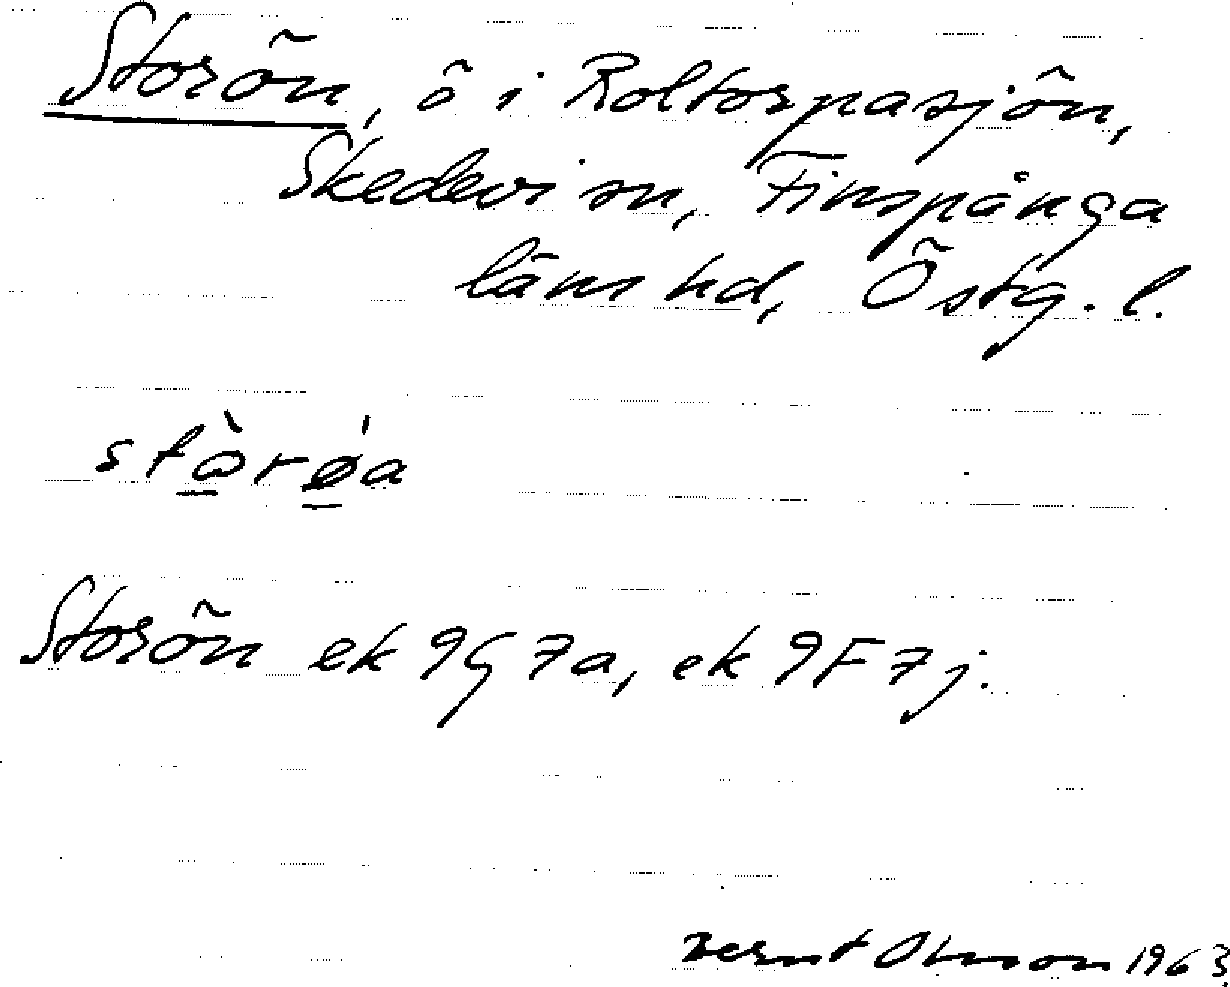 Storön, ö i Roltorpasjön,
Skedevi sn, Finspånga
läns hd, Östg. l.
stòrǿa
Storön ek 9G7a, ek 9F7j.
Bernt Olsson 1963.